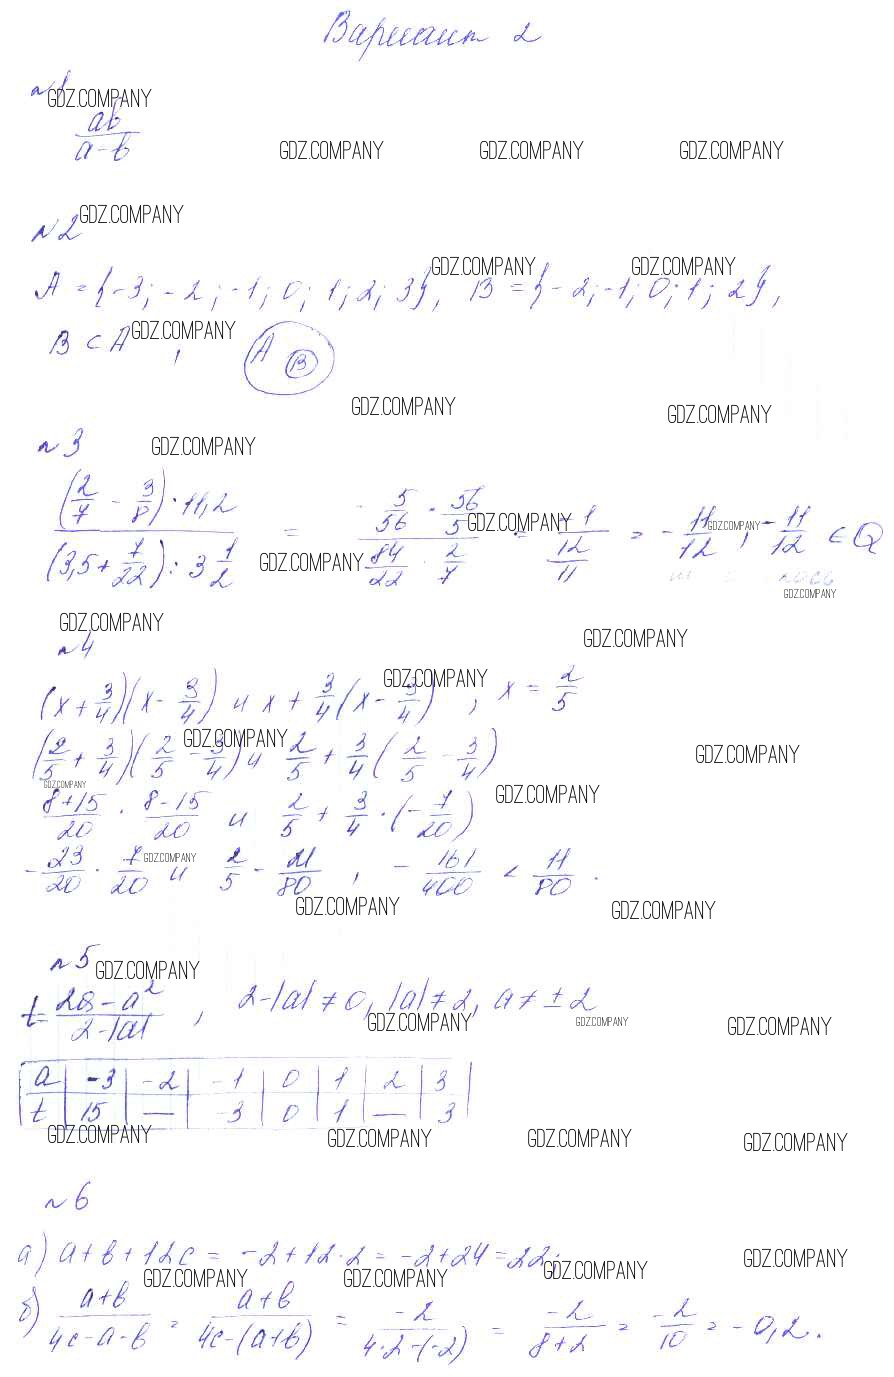 Вариант 2
№1
GDZ.COMPANY
ab/(a-b)
GDZ.COMPANY GDZ.COMPANY GDZ.COMPANY
№2 GDZ.COMPANY
GDZ.COMPANY GDZ.COMPANY
A = {-3; -2; -1; 0; 1; 2; 3}, B = {-2; -1; 0; 1; 2},
B ⊂ A, GDZ.COMPANY A B
GDZ.COMPANY GDZ.COMPANY
№3 GDZ.COMPANY
((2/7 - 3/8) · 11,2)/((3,5 + 7/22) : 3 1/2) = (-5/56 · 56/5)/(84/22 · 2/7) = -1/(12/11) = -11/12, -11/12 ∈ Q
GDZ.COMPANY GDZ.COMPANY GDZ.COMPANY
GDZ.COMPANY
GDZ.COMPANY GDZ.COMPANY
№4
GDZ.COMPANY
(x + 3/4)(x - 3/4) и x + 3/4(x - 3/4), x = 2/5
GDZ.COMPANY GDZ.COMPANY
(2/5 + 3/4)(2/5 - 3/4) и 2/5 + 3/4(2/5 - 3/4)
GDZ.COMPANY GDZ.COMPANY
(8+15)/20 · (8-15)/20 и 2/5 + 3/4 · (-7/20)
GDZ.COMPANY
-23/20 · 7/20 и 2/5 - 21/80, -161/400 < 11/80.
GDZ.COMPANY GDZ.COMPANY
№5 GDZ.COMPANY
t = (2a - a²)/(2-|a|), 2-|a| ≠ 0, |a| ≠ 2, a ≠ ±2
GDZ.COMPANY GDZ.COMPANY GDZ.COMPANY
a -3 -2 -1 0 1 2 3
t 15 — -3 0 1 — 3
GDZ.COMPANY GDZ.COMPANY GDZ.COMPANY GDZ.COMPANY
№6
а) a + b + 12c = -2 + 12·2 = -2 + 24 = 22;
GDZ.COMPANY GDZ.COMPANY GDZ.COMPANY GDZ.COMPANY
б) (a+b)/(4c-a-b) = (a+b)/(4c-(a+b)) = -2/(4·2-(-2)) = -2/(8+2) = -2/10 = -0,2.